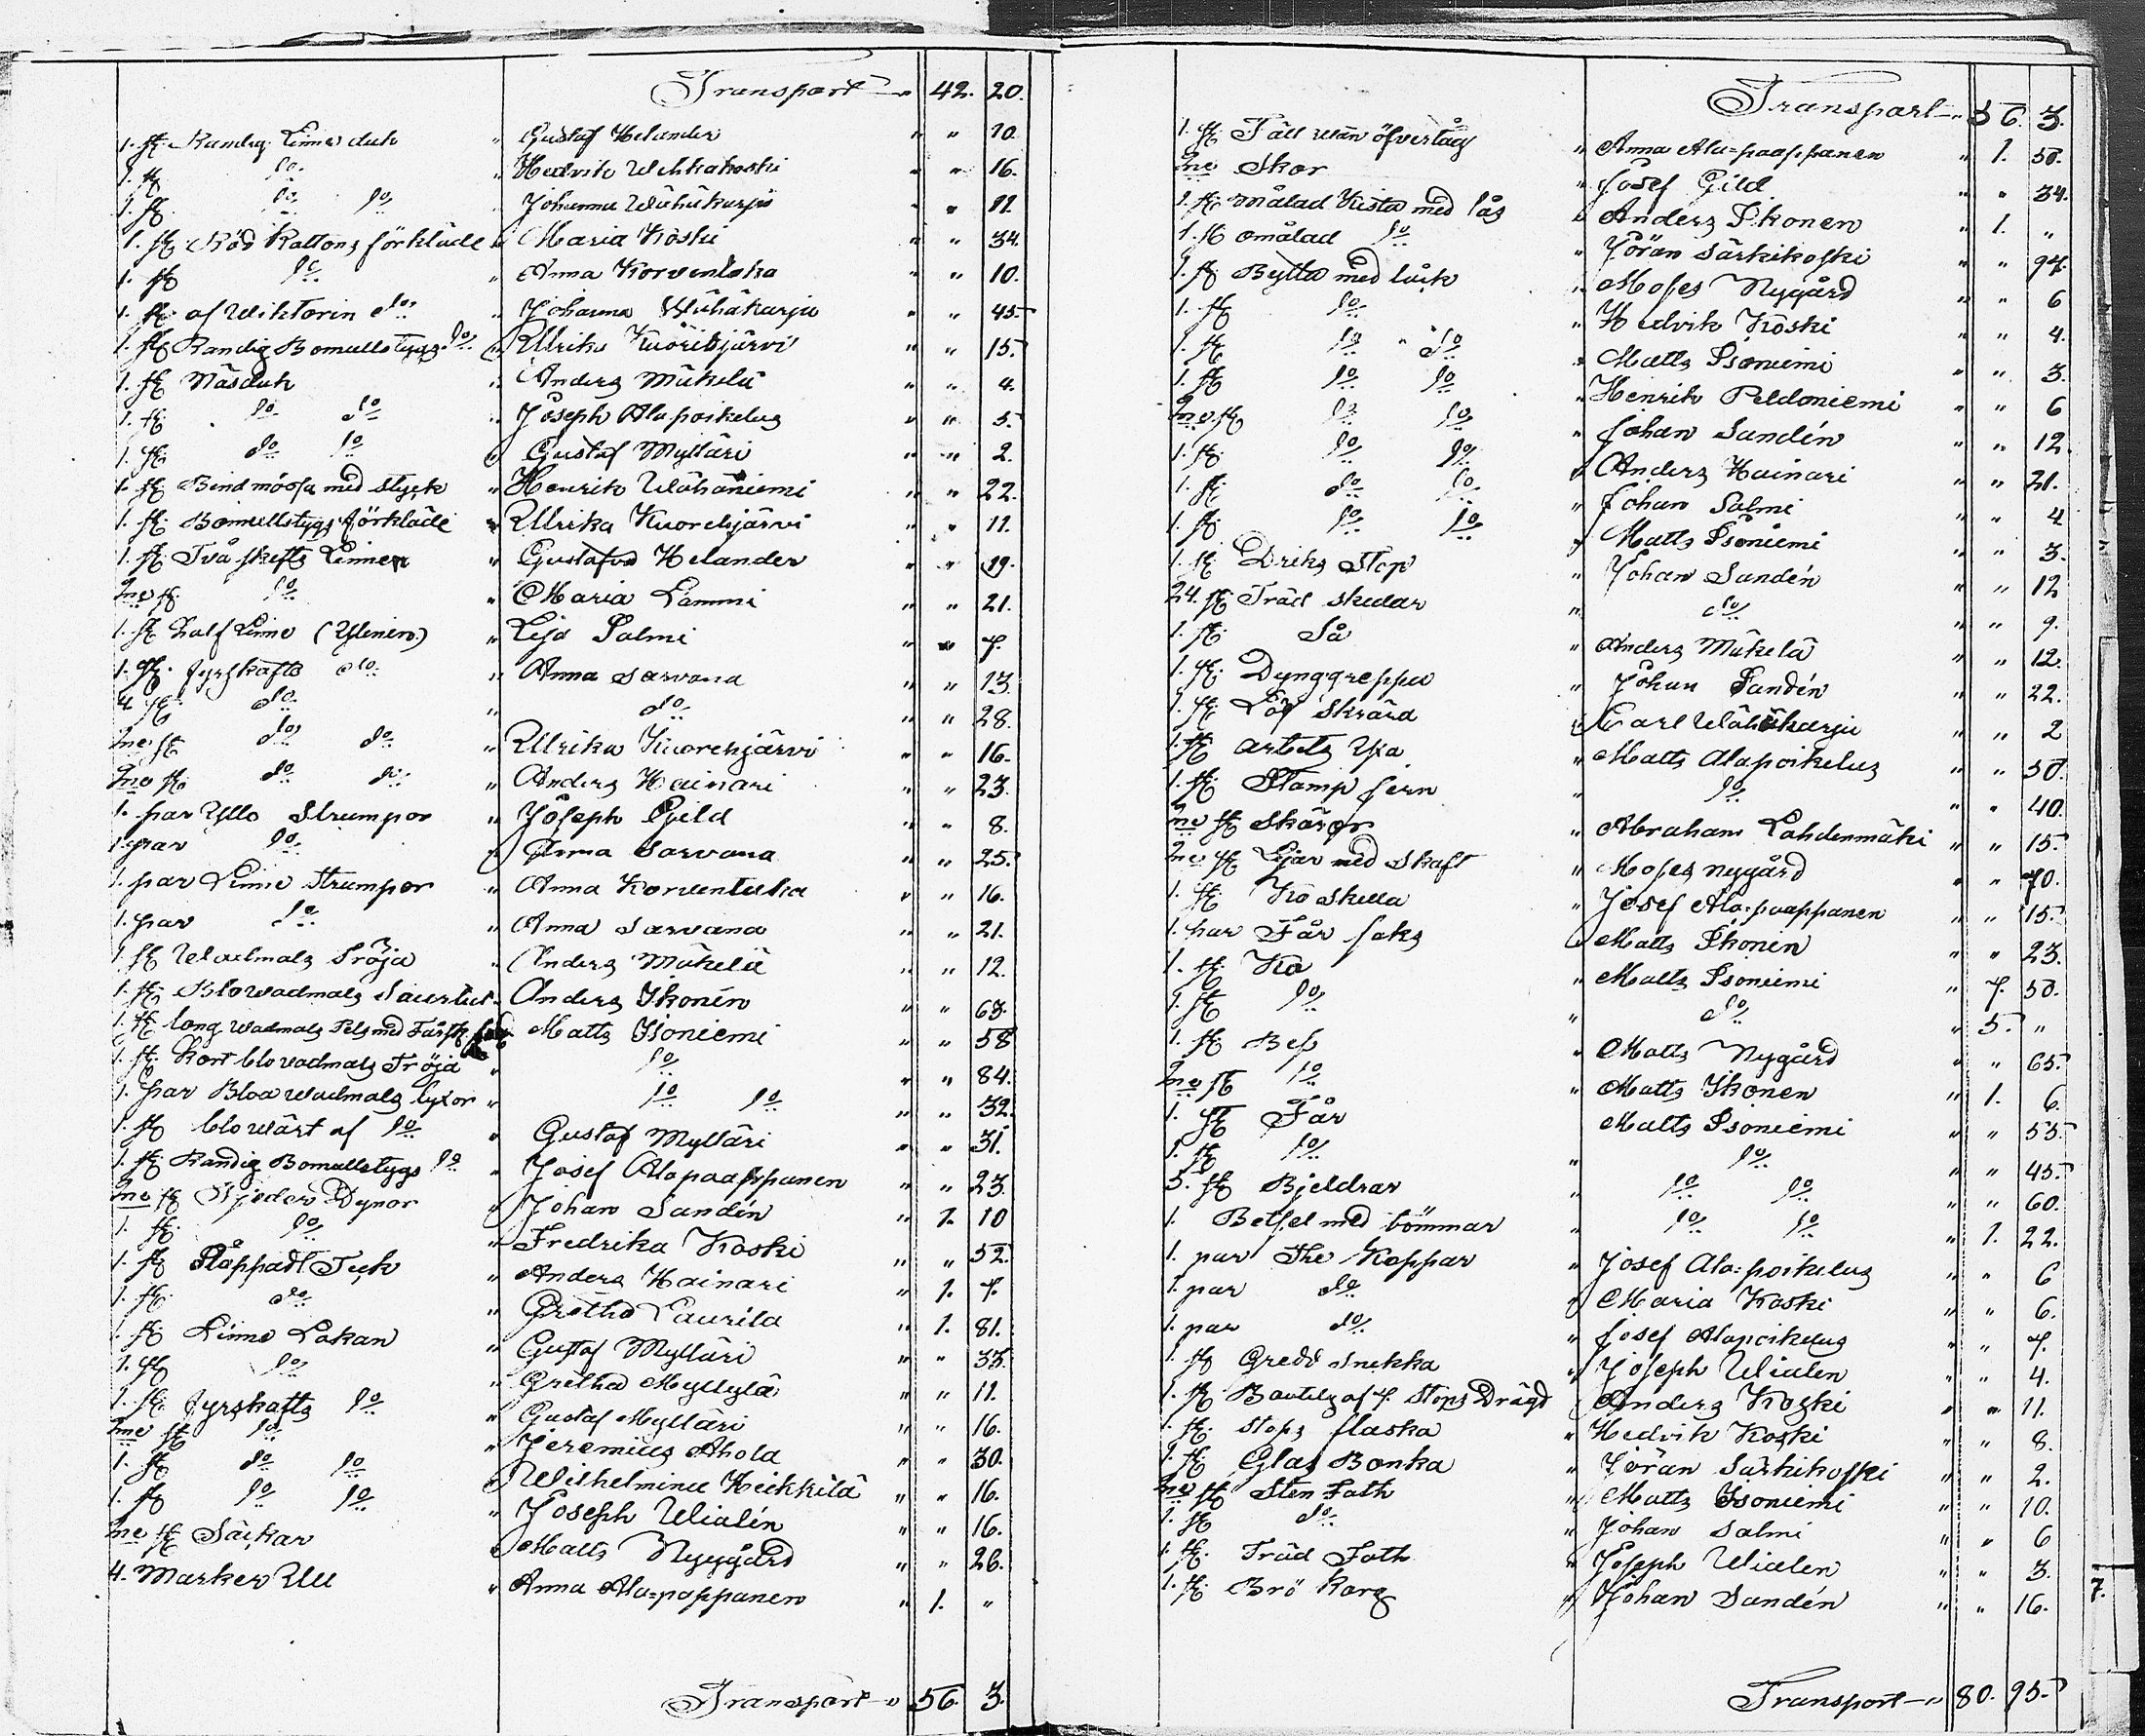 Transport — " 42. 20.
1. st. Randig Linne duk " Gustaf Helander " " 10.
1. st. do " Hedvik Wehkakoski " " 16.
1. st. do do " Johanna Wähäkarju " " 11.
1. st. Röd Kattons förkläde " Maria Koski " " 34.
1. st. do " Anna Korvenloka " " 10.
1. st. af Wiktorin do " Johanna Wähäkarju " " 45.
1. st. Randig Bomullstygs do " Ulrika Kuorehjärvi " " 15.
1. st. Näsduk " Anders Mäkelä " " 4.
1. st. do do " Joseph Alapoikelus " " 5.
1. st. do do " Gustaf Mylläri " " 2.
1. st. Bindmössa med styck " Henrik Wähäniemi " " 22.
1. st. Bomullstygs förkläde " Ulrika Kuorehjärvi " " 11.
1. st. Två skafts Linnen " Gustafva Helander " " 19.
2ne st. do " Maria Lammi " " 21.
1. st. half Linne (Ylinen) " Lisa Salmi " " 7.
1. st. fyrskafts do " Anna Sarvana " " 13.
4 st. do " do " " 28.
2ne st. do do " Ulrika Kuorehjärvi " " 16.
2ne st. do do " Anders Hainari " " 23.
1. par Ylle Strumpor " Joseph Gild " " 8.
1. par do " Anna Sarvana " " 25.
1. par Linne Strumpor " Anna Korventaka " " 16.
1. par do " Anna Sarvana " " 21.
1. st. Wadmals Tröja " Anders Mäkelä " " 12.
1. st. Blo wadmals " Anders Ikonen " " 63.
1. st. lång wadmals Pels med Fårsk " Matts Isoniemi " " 58
1. st. kort blo vadmals Tröja " do " " 84.
1. par Bloa wadmals byxor " do do " " 32.
1. st. blo wäst af do " Gustaf Mylläri " " 31.
1. st. Randig Bomullstygs do " Josef Alapaappanen " " 23.
2ne st. Fjeders Dynor " Johan Sandén " 1. 10
1. st. do " Fredrika Koski " " 52.
1. st. Stoppadt Teck " Anders Hainari " 1. 7.
1. st. do " Gretha Laurila " 1. 81.
1. st. Linne Lakan " Gustaf Mylläri " " 33.
1. st. do " Gretha Myllylä " " 11.
1. st. fyrskafts do " Gustaf Mylläri " " 16.
2ne st. do " Jeremias Ahola " " 30.
1. st. do do " Wilhelmina Heikkilä " " 16.
1. st. do do " Joseph Wialén " " 16.
2ne st. Säckar " Matts Nygård " " 26.
4. Marker Ull " Anna Ala=pappanen " 1. "
Transport — " 56. 3.
Transport — " 56. 3.
1. st. Fäll utan öfvertåg " Anna Ala=paappanen " 1. 50.
2ne Skor " Josef Gild " " 34.
1. st. målad Kista med lås " Anders Ikonen " 1. "
1. st. omålad do " Jöran Särkikoski " " 94.
1. st. Bytta med låck " Moses Nygård " " 6
1. st. do " Hedvik Koski " " 4.
1. st. do do " Matts Isoniemi " " 3.
1. st. do do " Henrik Peldoniemi " " 6
2ne st. do do " Johan Sandén " " 12.
1. st. do do " Anders Hainari " " 21.
1. st. do do " Johan Salmi " " 4
1. st. do do " Matts Isoniemi " " 3.
1. st. Driks Stop " Johan Sandén " " 12
24. st. Träd skedar " do " " 9.
1. st. Så " Anders Mäkelä " " 12.
1. st. Dynggreppa " Johan Sandén " " 22.
1. st. Löf Skrära " Carl Wähäkarju " " 2
1. st. arbets Yxa " Matts Alapoikelus " " 50.
1. st. Stamp jern " do " " 40.
2ne st. Skäror " Abraham Lahdenmäki " " 15.
2ne st. Ljar med Skaft " Moses Nygård " " 70.
1. st. Ko Skella " Josef Ala=paappanen " " 15.
1. par Får saks " Matts Ikonen " " 23.
1. st. Ko " Matts Isoniemi " 7. 50.
1. st. do " do " 5. "
1. st. " Matts Nygård " " 65.
2ne st. do " Matts Ikonen " 1. 6.
1. st. Får Matts Isoniemi " " 55.
1. st. do " do " " 45.
5. st. Bjeldrar " do do " " 60.
1. Betsel med tömmar " do do " 1. 22.
1. par The Koppar " Josef Ala=poikelus " " 6
1. par do " Maria Koski " " 6.
1. par do " Josef Alapoikelus " " 7.
1. st. Gredd Snekka " Joseph Wialen " " 4.
1. st. Boutelg af 7. Stops Drägd " Anders Koski " " 11.
1. st. stops flaska " Hedvik Koski " " 8.
1. st. Glas Bonka " Jöran Särkikoski " " 2.
2ne st. Sten Fath " Matts Isoniemi " " 10.
1. st. do " Johan Salmi " " 6
1. st. Träd Fath " Joseph Wialen " " 3.
1. st. Brö Korg " Johan Sandén " " 16.
7.
Transport — " 80. 95.